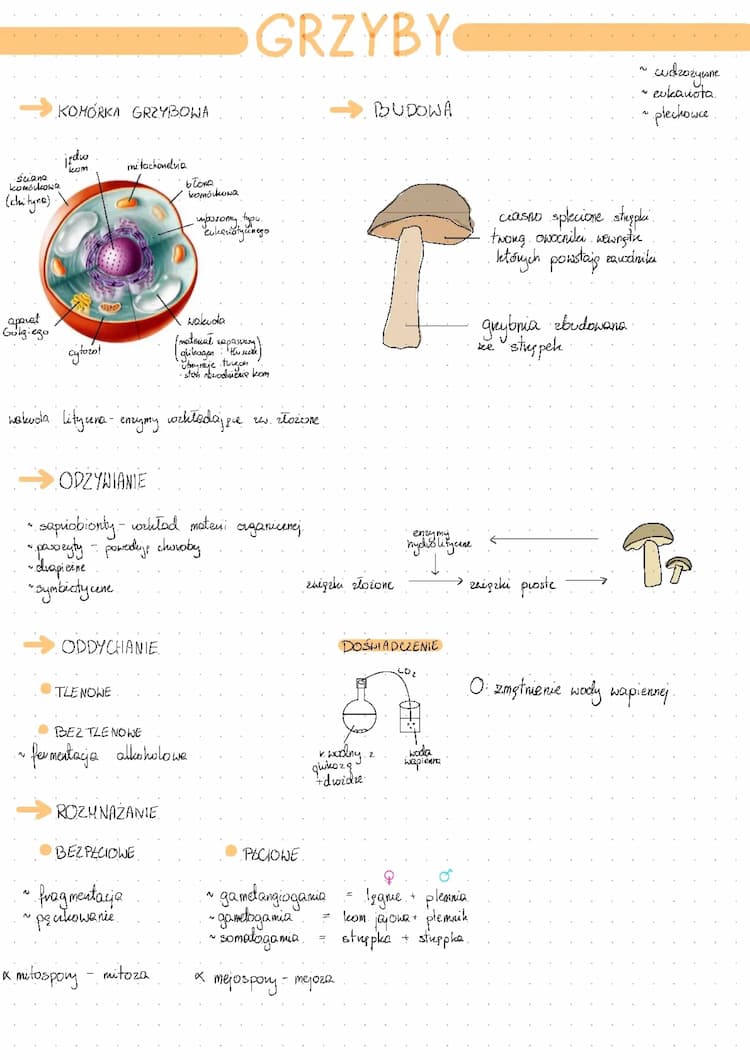 GRZYBY
~ cudzożywne
~ eukariota
~ plechowce
→ KOMÓRKA GRZYBOWA
jądro
kom
mitochondria
ściana
komórkowa
(chityna)
błona
komórkowa
rybosomy typu
eukariotycznego
aparat
Golgiego
cytozol
wakuola
(materiał zapasowy
glikogen tłuszcze)
utrzymuje turgor
stoń nawodnienia kom
wakuola lityczna - enzymy rozkładające zw. złożone
→ BUDOWA
ciasno splecione strzępki
tworzą owocniki wewnątrz
których powstają zarodniki
grzybnia zbudowana
ze strzępek
→ ODŻYWIANIE
~ saprobionty - rozkład materii organicznej
~ pasożyty - powodują choroby
~ drapieżne
~ symbiotyczne
enzymy
hydrolityczne
związki złożone → związki proste →
→ ODDYCHANIE
TLENOWE
BEZTLENOWE
~ fermentacja alkoholowa
DOŚWIADCZENIE
CO₂
r. wodny z
glukozą
+ drożdże
woda
wapienna
O: zmętnienie wody wapiennej
→ ROZMNAŻANIE
BEZPŁCIOWE
~ fragmentacja
~ pączkowanie
∝ mitospory - mitoza
PŁCIOWE
♀ ♂
~ gametangiogamia = lęgnie + plemnia
~ gametogamia = kom. jajowa + plemnik
~ somatogamia = strzępka + strzępka
∝ mejospory - mejoza